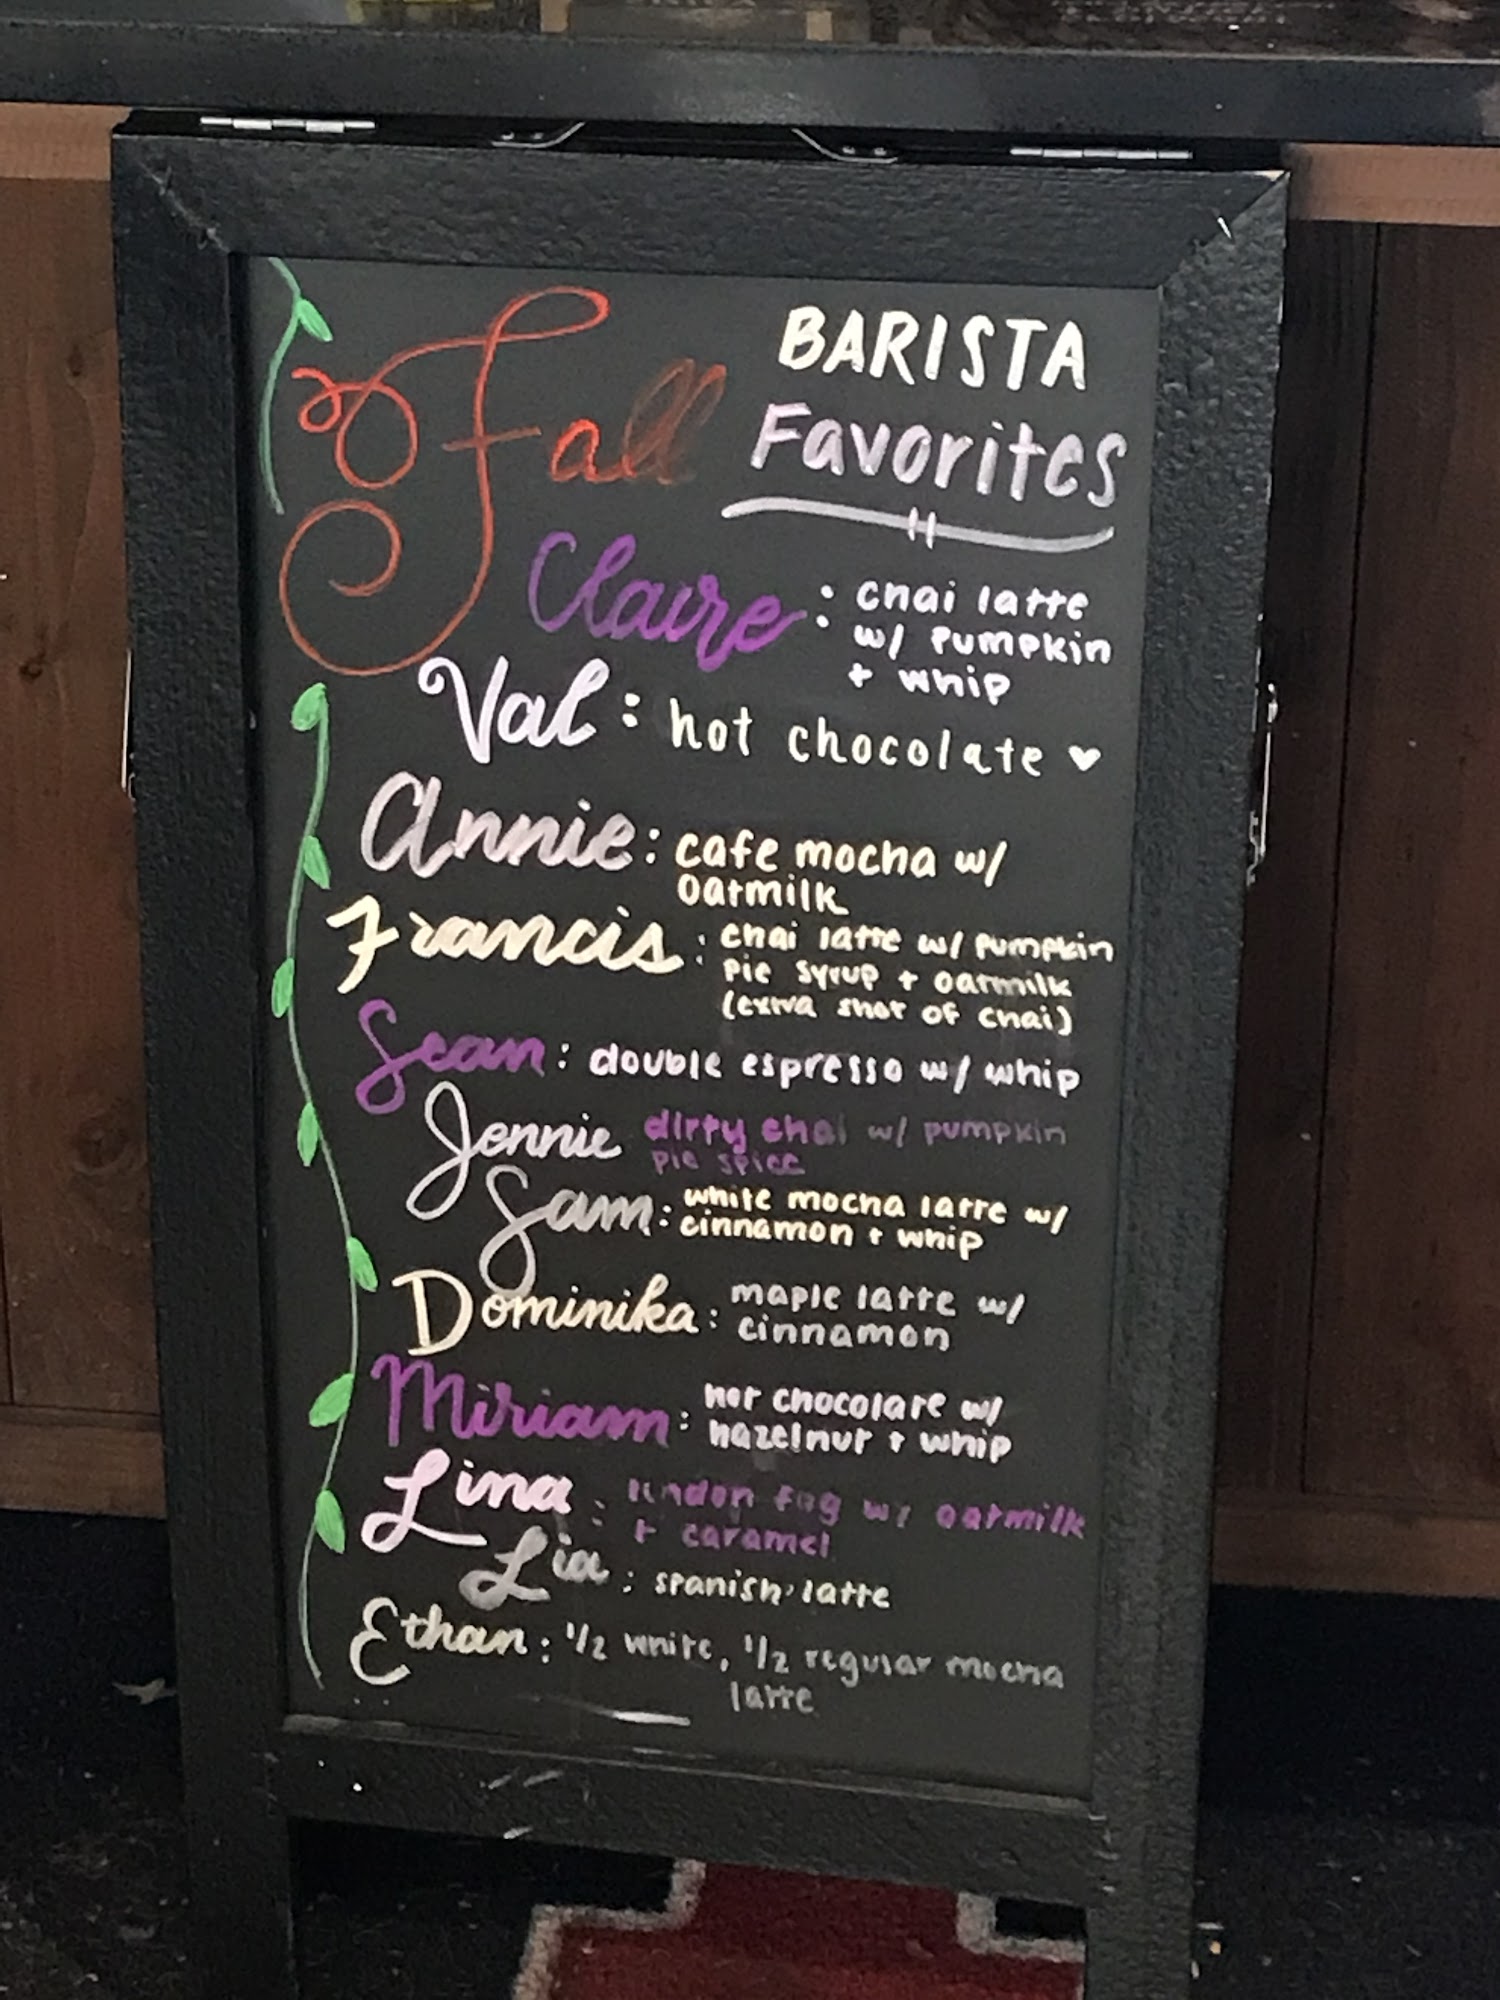 Fall
BARISTA
Favorites
Claire: chai latte
w/ pumpkin
+ whip
Val: hot chocolate ♥
Annie: cafe mocha w/
oatmilk
Francis: chai latte w/ pumpkin
pie syrup + oatmilk
(extra shot of chai)
Sean: double espresso w/ whip
Jennie dirty chai w/ pumpkin
pie spice
Sam: white mocha latte w/
cinnamon + whip
Dominika: maple latte w/
cinnamon
Miriam: hot chocolate w/
hazelnut + whip
Lina: london fog w/ oatmilk
+ caramel
Lia: spanish latte
Ethan: 1/2 white, 1/2 regular mocha
latte